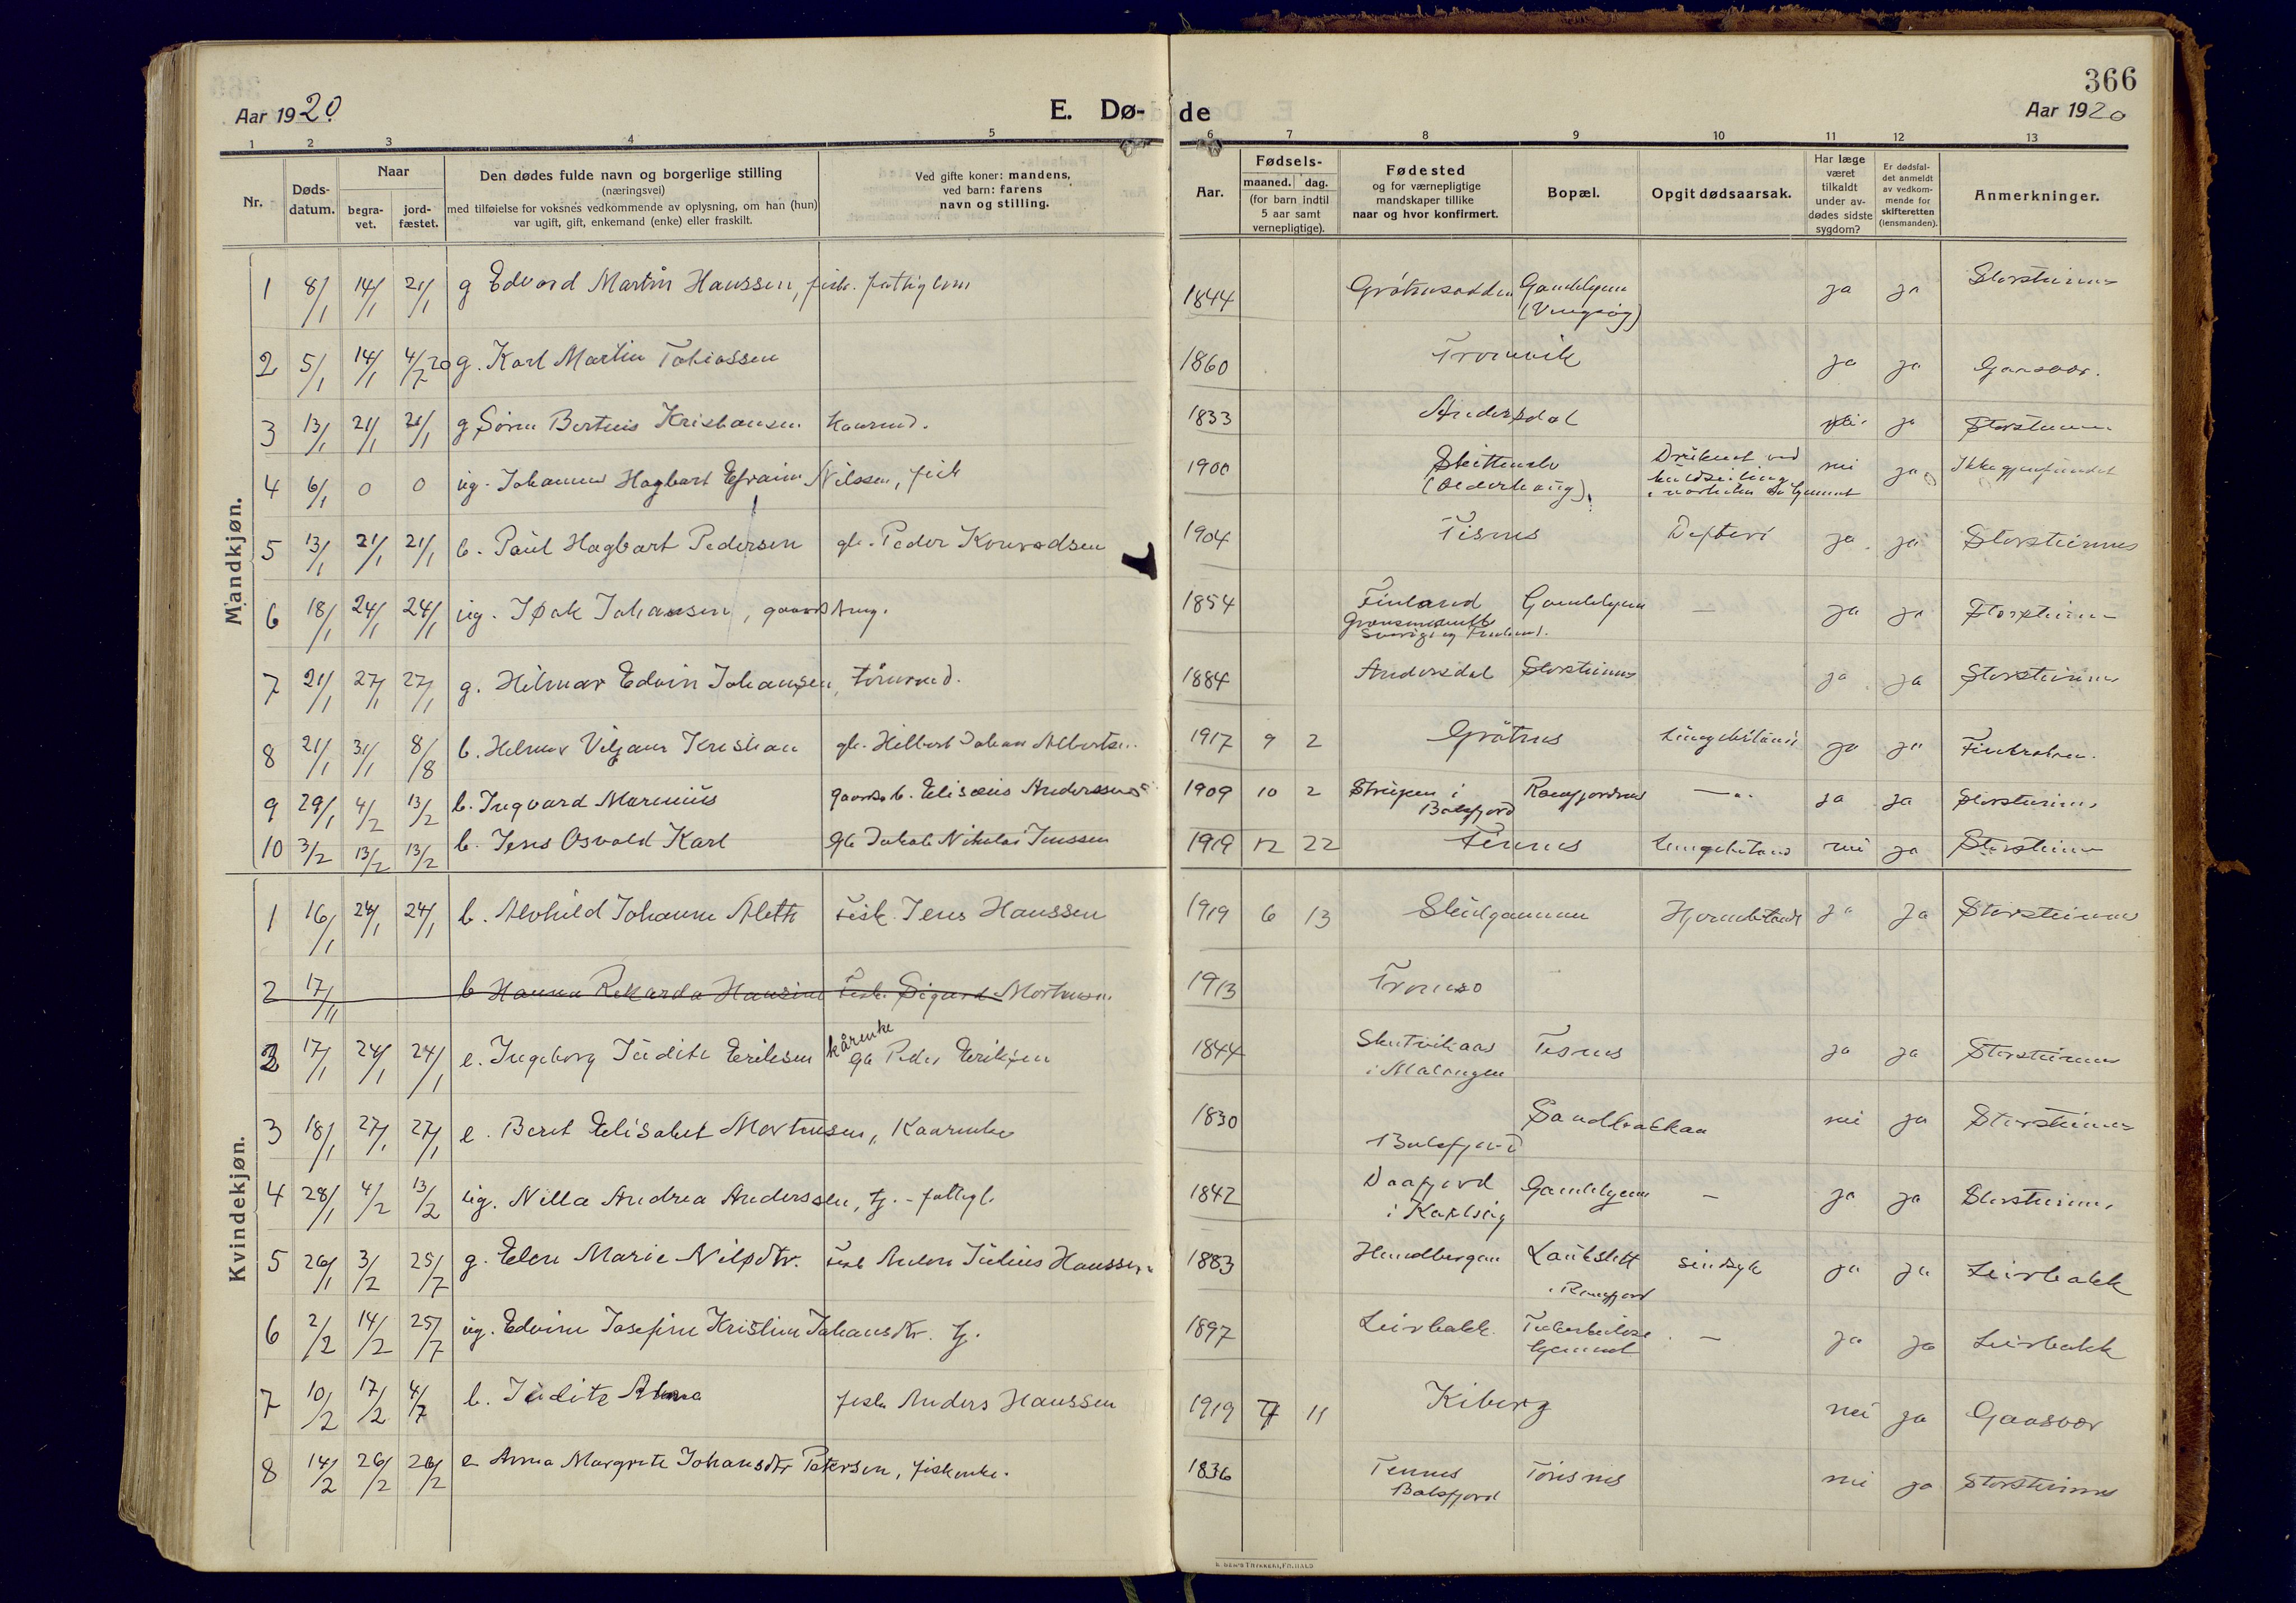 366
Aar 1920
E. Dø-de
Aar 1920
1 2 3 4 5 6 7 8 9 10 11 12 13
Nr.
Døds-
datum.
Naar
begra-
vet.
jord-
fæstet.
Den dødes fulde navn og borgerlige stilling
(næringsvei)
med tilføielse for voksnes vedkommende av oplysning, om han (hun)
var ugift, gift, enkemand (enke) eller fraskilt.
Ved gifte koner: mandens,
ved barn: farens
navn og stilling.
Aar.
Fødsels-
maaned. dag.
(for barn indtil
5 aar samt
vernepligtige).
Fødested
og for værnepligtige
mandskaper tillike
naar og hvor konfirmert.
Bopæl.
Opgit dødsaarsak.
Har læge
været
tilkaldt
under av-
dødes sidste
sygdom?
Er dødsfal-
det anmeldt
av vedkom-
mende for
skifteretten
(lensmanden).
Anmerkninger.
Mandkjøn.
1 8/1 14/1 21/1 g Edvard Martin Hanssen, fisk. fattiglem 1844 Gamlehjem ja ja Storsteinnes
(Vengsøy)
2 5/1 14/1 4/7 20 g. Karl Martin Tobiassen 1860 Tromvik ja ja Gaasvær.
3 13/1 21/1 21/1 g Søren Bertius Kristiansen Kaarmd. 1833 Andersdal ja Storsteinnes
4 6/1 0 0 ug. Johannes Hagbart Efraim Nilssen, fisk 1900 Druknet ved nei ja Ikke gjenfundet
5 13/1 21/1 21/1 b. Paul Hagbart Pedersen gb. Peder Konradsen 1904 Tisnes Difteri ja. ja Storsteinnes
6 18/1 24/1 24/1 ug. Isak Johansen, gaards 1854 Finland Gamlehjem — ja ja Storsteinnes
7 21/1 27/1 27/1 g. Hilmar Edvin Johansen, 1884 Andersdal Storsteinnes ja ja Storsteinnes
8 21/1 31/1 8/8 b. Helmer Viljam Kristian gb. Hilbert Johan Albertsen. 1917 9 2 Grøtnes Lungebetænd. ja ja
9 29/1 4/2 13/2 b. Ingvard Marenius gaardb. Elisæus Anderssen 1909 10 2 Strupen i Ramfjordnes —"— ja ja Storsteinnes
Balsfjord
10 3/2 13/2 13/2 b. Jens Osvald Karl gb Jakob Nikolai Jenssen 1919 12 22 Finnes Lungebetænd nei ja Storsteinnes
Kvindekjøn.
1 16/1 24/1 24/1 b. Alvhild Johanne Aleth Fisk. Jens Hanssen 1919 6 13 Skulgammen Hjernebetænd ja ja Storsteinnes
2 17/11 b Hanna Rikarda Hansine Fisk. Sigurd Mortensen. 1913 Tromsø
2 17/1 24/1 24/1 e. Ingeborg Judith Eriksen kårenke
gb Peder Eriksen 1844 Skutvikaas Tisnes ja ja Storsteinnes
i Malangen
3 18/1 27/1 27/1 e. Beret Elisabet Mortensen, Kaarenke 1830 Balsfjord Sandbakkan nei ja Storsteinnes
4 28/1 4/2 13/2 ug. Nilla Andrea Anderssen, tj. - fattigl. 1842 Daafjord Gamlehjem — ja ja Storsteinnes
i Karlsøy
5 26/1 3/2 25/7 g. Elen Marie Nilsdtr. Fisk Anton Julius Hanssen 1883 Hundbergan Laukslett sindsyk ja ja Leirbakk
i Ramfjord
6 2/2 14/2 25/7 ug. Edvine Josefine Kristine Johansdtr. tj. 1897 Leirbakk. Tuberkulose — ja ja Leirbakk
hjemmet
7 10/2 17/2 4/7 b. Judith Alma fisk Anders Hanssen 1919 7 11 Kiberg nei ja Gaasvær
8 14/2 26/2 26/2 e Anna Margrete Johansdtr Petersen, fiskenke. 1836 Tennes nei ja Storsteinnes
Balsfjord